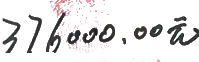 376000.00元